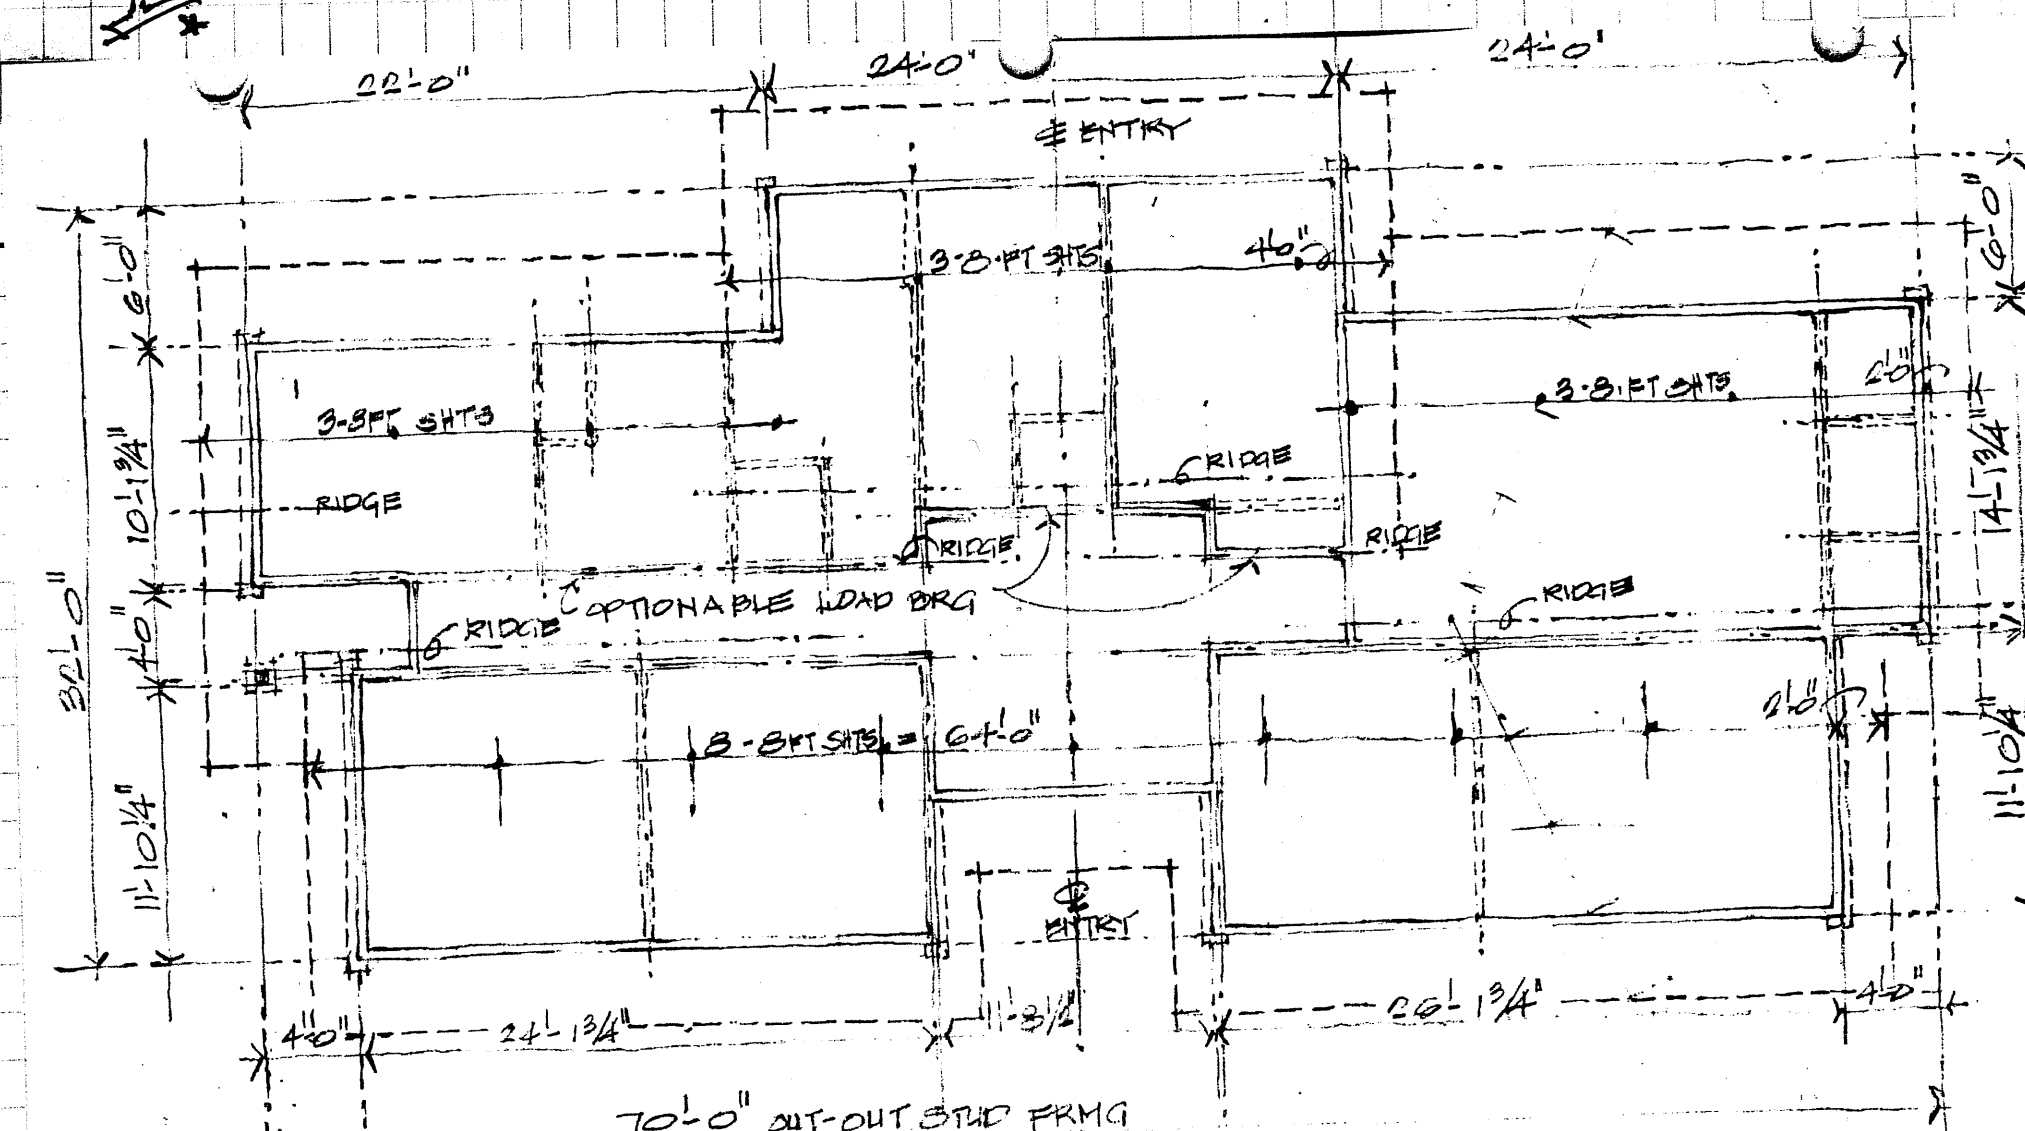 22'-0"
24'-0"
24'-0"
℄ ENTRY
6'-0"
6'-0"
3-8-FT SHTS
4'0"
3-8FT SHTS
3-8-FT SHTS
2'-0"
10'-1 3/4"
14'-1 3/4"
RIDGE
RIDGE
RIDGE
RIDGE
32'-0"
4'-0"
OPTIONABLE LOAD BRG
RIDGE
RIDGE
8-8FT SHTS = 64'-0"
2'-0"
11'-10 1/4"
11'-10 1/4"
℄
ENTRY
4'-0"
24'-1 3/4"
11'-8 1/2"
26'-1 3/4"
4'-0"
70'-0" OUT-OUT STUD FRMG